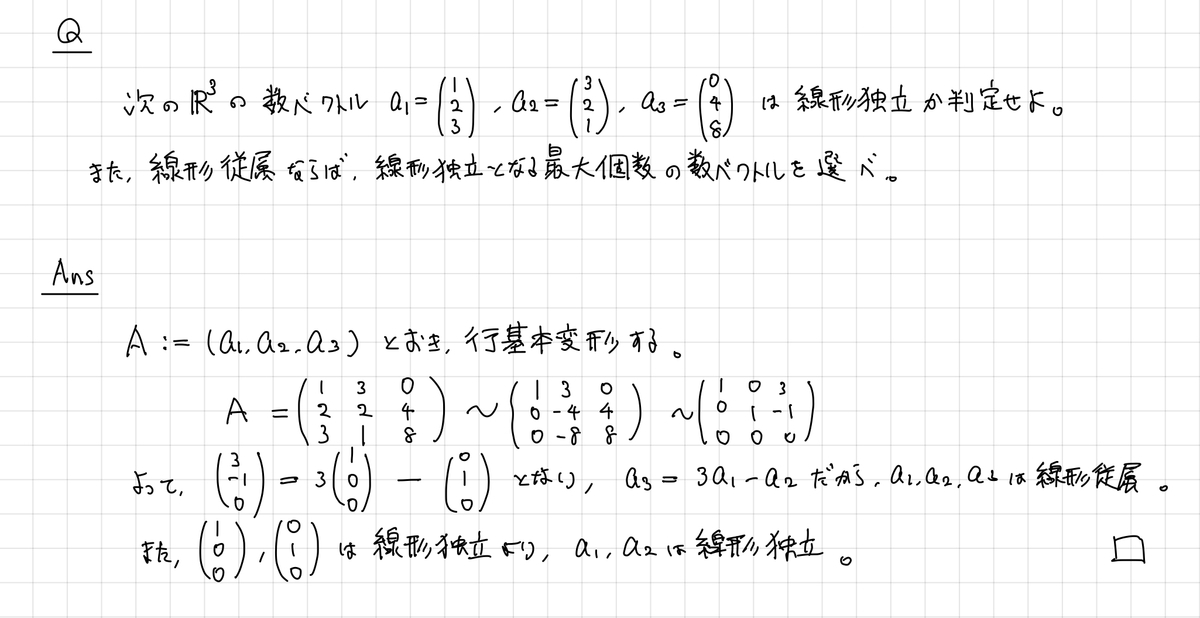 Q
次の ℝ³ の 数ベクトル a₁=(1 2 3), a₂=(3 2 1), a₃=(0 4 8) は 線形独立か判定せよ。
また, 線形従属ならば, 線形独立となる最大個数の数ベクトルを選べ。
Ans
A := (a₁, a₂, a₃) とおき, 行基本変形する。
A = (1 3 0 / 2 2 4 / 3 1 8) ~ (1 3 0 / 0 -4 4 / 0 -8 8) ~ (1 0 3 / 0 1 -1 / 0 0 0)
よって, (3 -1 0) = 3(1 0 0) - (0 1 0) となり, a₃ = 3a₁ - a₂ だから, a₁, a₂, a₃ は 線形従属。
また, (1 0 0), (0 1 0) は 線形独立より, a₁, a₂ は 線形独立。 □